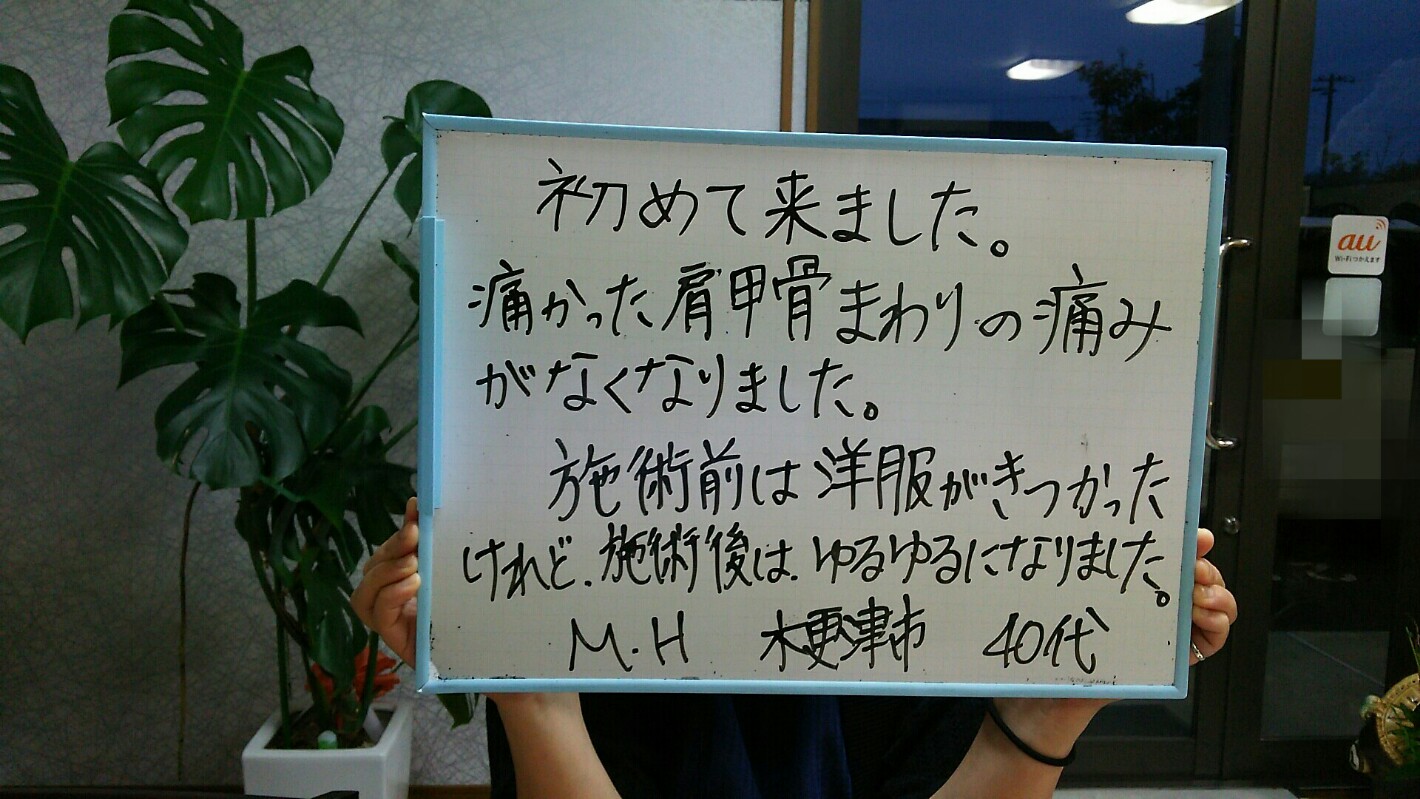 初めて来ました。
痛かった肩甲骨まわりの痛み
がなくなりました。
施術前は洋服がきつかった
けれど、施術後は、ゆるゆるになりました。
M.H 木更津市 40代
au
Wi-Fiつかえます